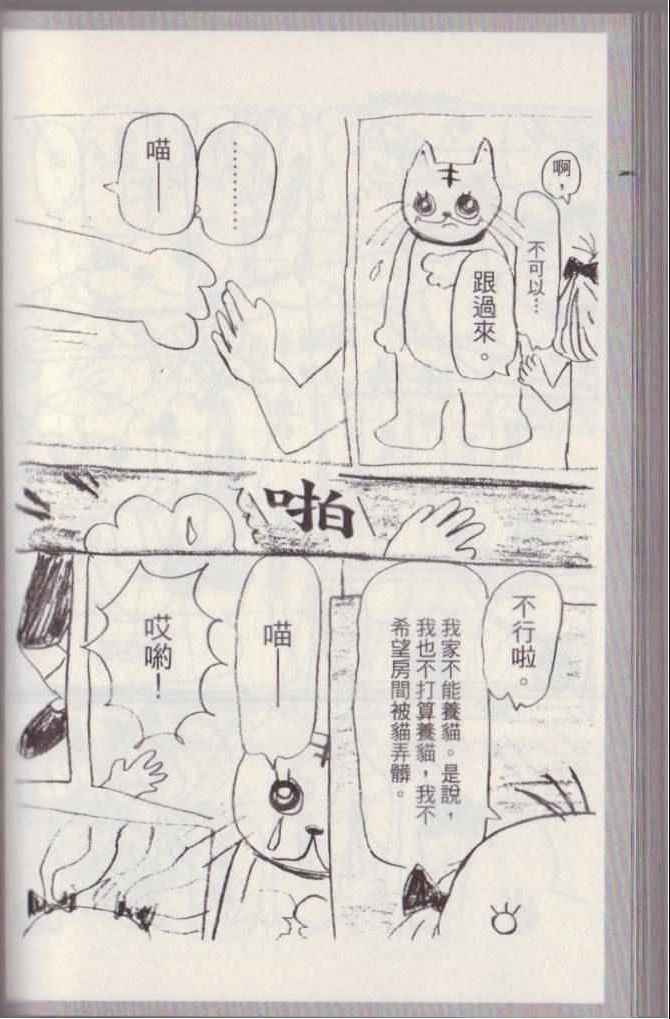 啊，
不可以…
跟過來。
…………
喵──
啪
不行啦。
我家不能養貓。是說，
我也不打算養貓，我不
希望房間被貓弄髒。
喵──
哎喲！